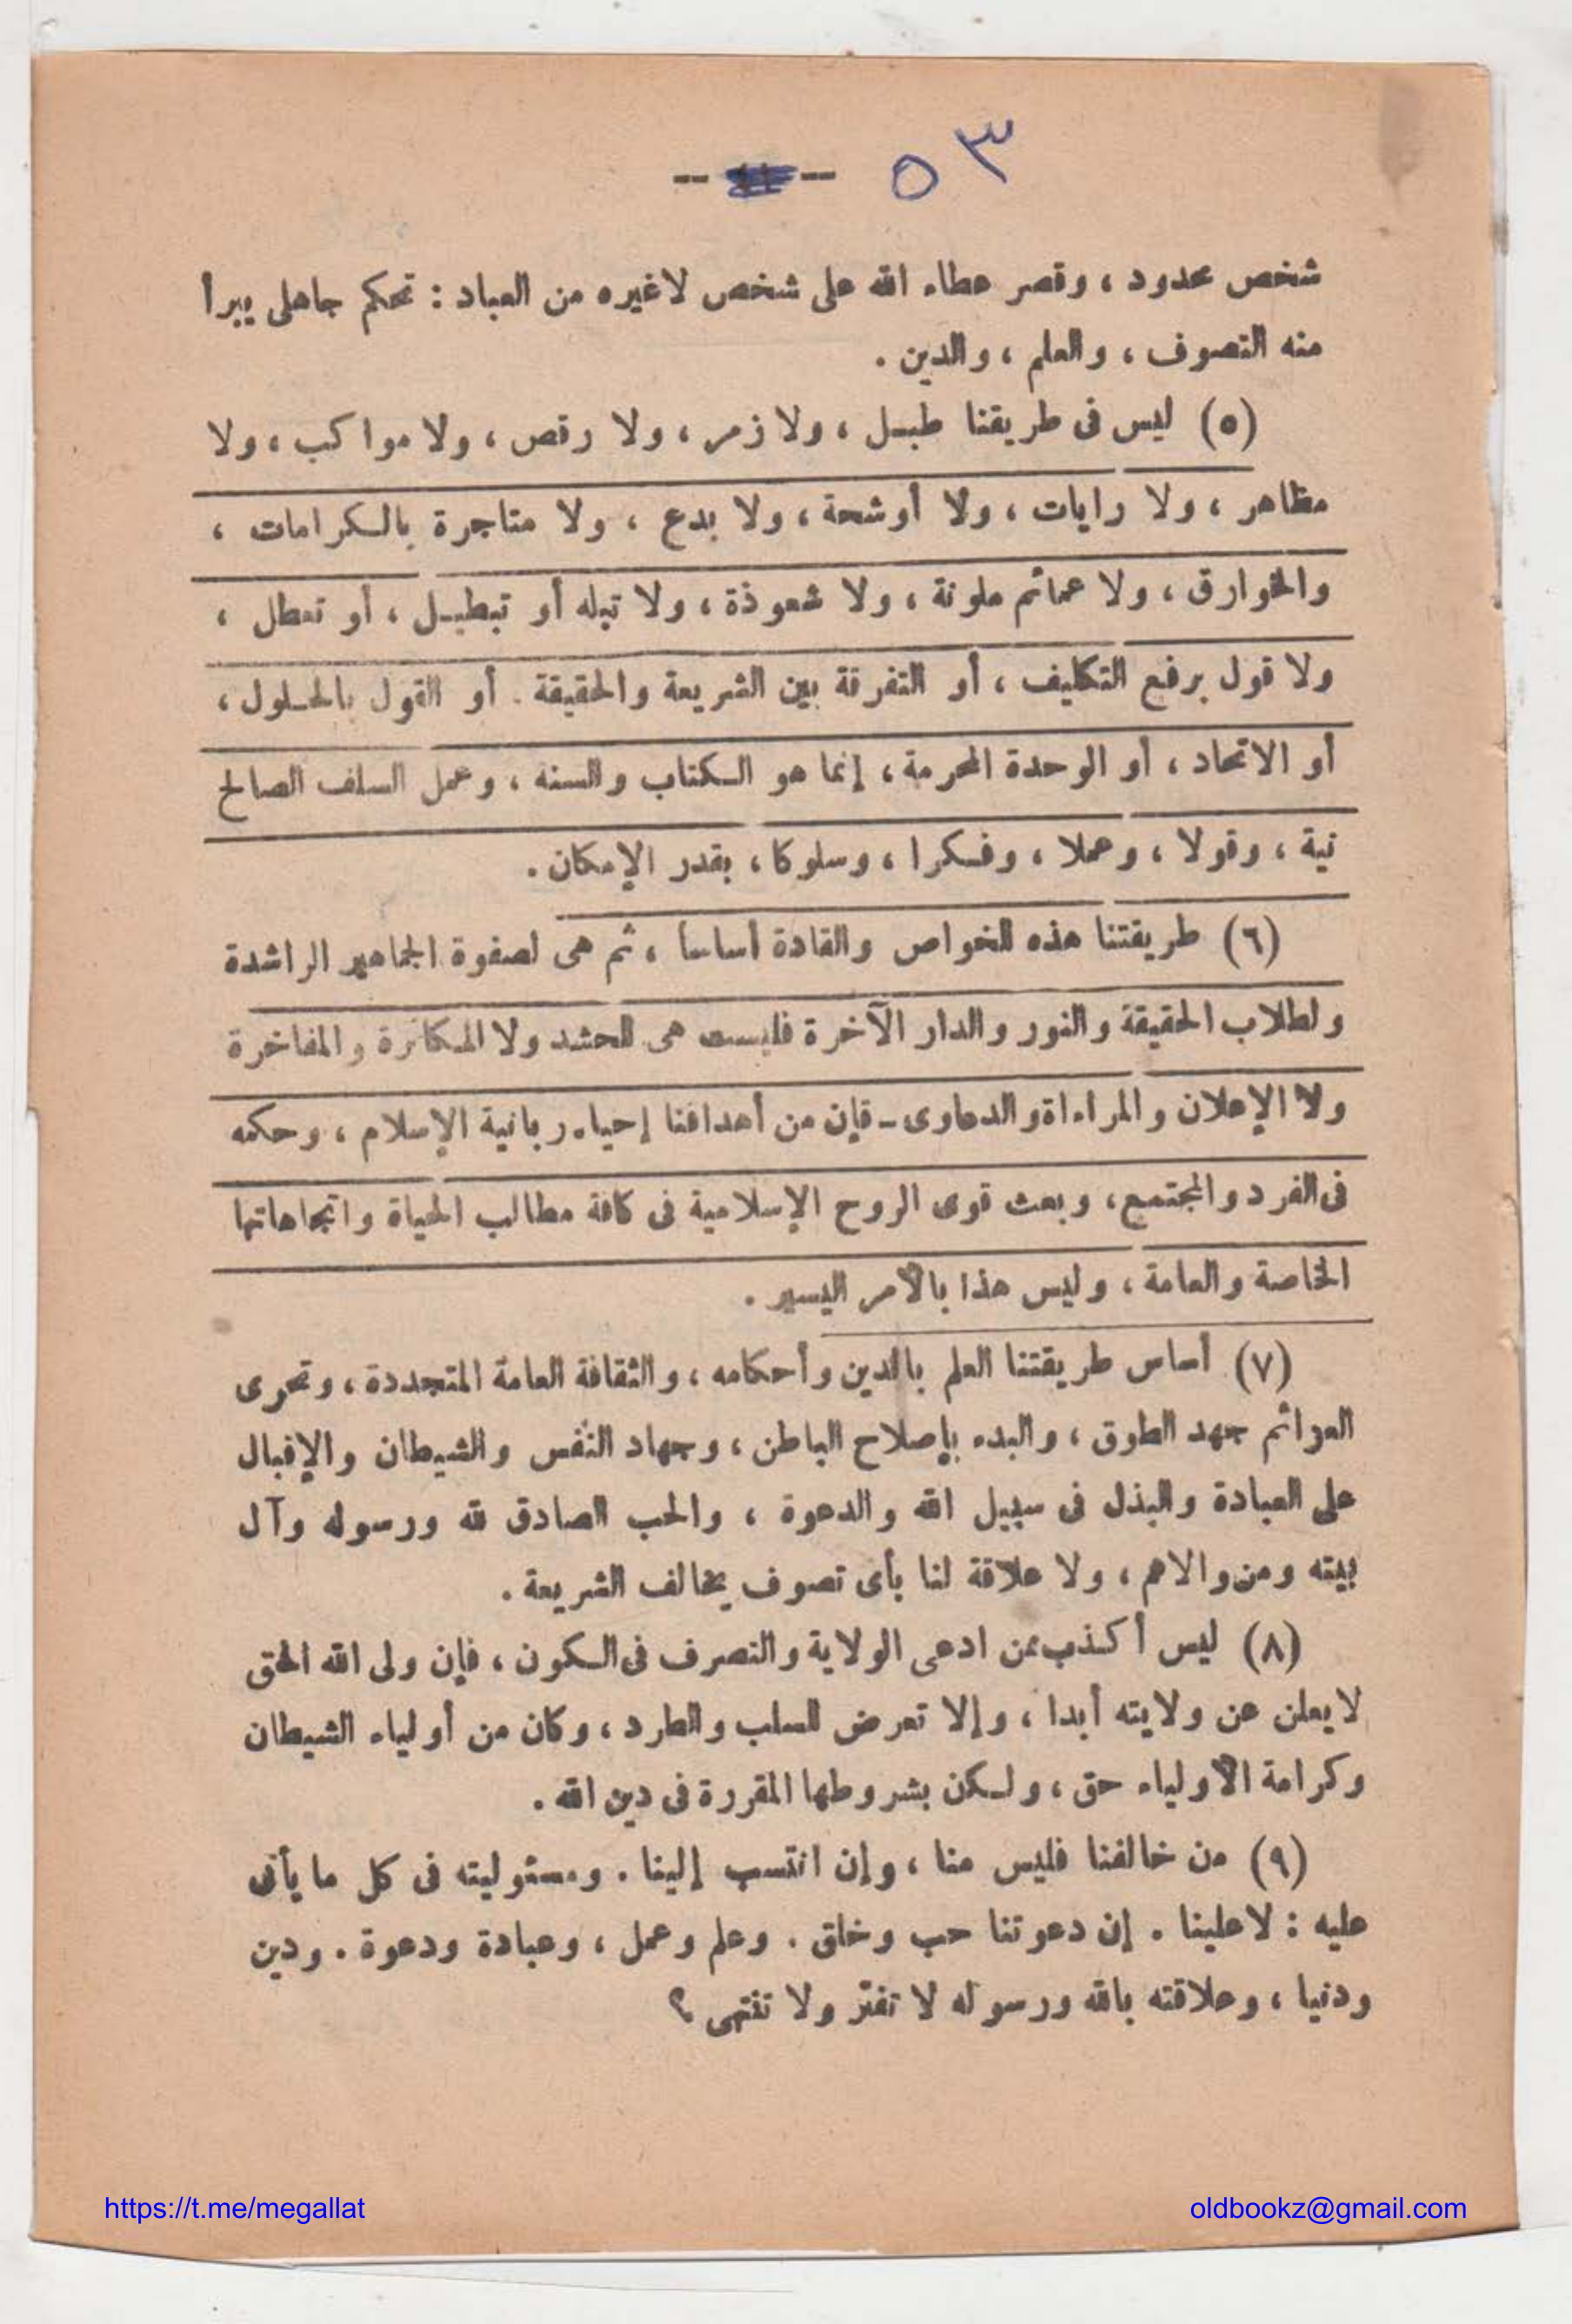 ٥٣
شخص محدود ، وقصر عطاء الله على شخص لاغيره من العباد : تحكم جاهلى يبرأ
منه التصوف ، والعلم ، والدين .
(٥) ليس فى طريقنا طبل ، ولا زمر ، ولا رقص ، ولا مواكب ، ولا
مظاهر ، ولا رايات ، ولا أوشحة ، ولا بدع ، ولا متاجرة بالكرامات ،
والخوارق ، ولا عمائم ملونة ، ولا شعوذة ، ولا تبله أو تبطيل ، أو تعطل ،
ولا قول برفع التكليف ، أو التفرقة بين الشريعة والحقيقة . أو القول بالحلول ،
أو الاتحاد ، أو الوحدة المحرمة ، إنما هو الكتاب والسنه ، وعمل السلف الصالح
نية ، وقولا ، وعملا ، وفكرا ، وسلوكا ، بقدر الإمكان .
(٦) طريقتنا هذه للخواص والقادة أساسا ، ثم هى لصفوة الجماهير الراشدة
ولطلاب الحقيقة والنور والدار الآخرة فليست هى للحشد ولا المكاثرة والمفاخرة
ولا الإعلان والمراءاة والدعاوى - فإن من أهدافنا إحياء ربانية الإسلام ، وحكمه
فى الفرد والمجتمع ، وبعث قوى الروح الإسلامية فى كافة مطالب الحياة واتجاهاتها
الخاصة والعامة ، وليس هذا بالأمر اليسير .
(٧) أساس طريقتنا العلم بالدين وأحكامه ، والثقافة العامة المتجددة ، وتحرى
العزائم جهد الطوق ، والبدء بإصلاح الباطن ، وجهاد النفس والشيطان والإقبال
على العبادة والبذل فى سبيل الله والدعوة ، والحب الصادق لله ورسوله وآل
بيته ومن والاهم ، ولا علاقة لنا بأى تصوف يخالف الشريعة .
(٨) ليس أكذب ممن ادعى الولاية والتصرف فى الكون ، فإن ولى الله الحق
لا يعلن عن ولايته أبدا ، وإلا تعرض للسلب والطرد ، وكان من أولياء الشيطان
وكرامة الأولياء حق ، ولكن بشروطها المقررة فى دين الله .
(٩) من خالفنا فليس منا ، وإن انتسب إلينا . ومسئوليته فى كل ما يأتى
عليه : لا علينا . إن دعوتنا حب وخلق . وعلم وعمل ، وعبادة ودعوة . ودين
ودنيا ، وعلاقته بالله ورسوله لا تفتر ولا تنتهى ؟
https://t.me/megallat
oldbookz@gmail.com